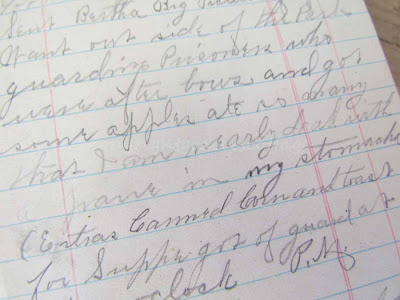 Sent Bertha Big
Want out side of the Park
guarding Prisoners who
were after bows and got
some apples ate so many
that I am nearly dead with
a paine in my stomache
(Extras Canned Corn and toast
for Suppe got of guard at
oclock P.M.